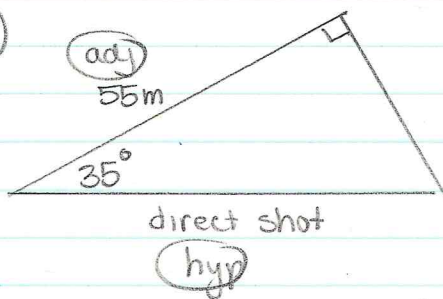 adj
55m
35°
direct shot
hyp